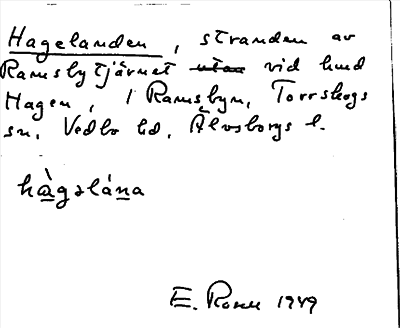 Hagelanden, stranden av
Ramsbytjärnet utan vid hmd
Hagen, i Ramsbyn, Torrskogs
sn, Vedbo hd, Älvsborgs l.
hàgəlána
E. Rosell 1949